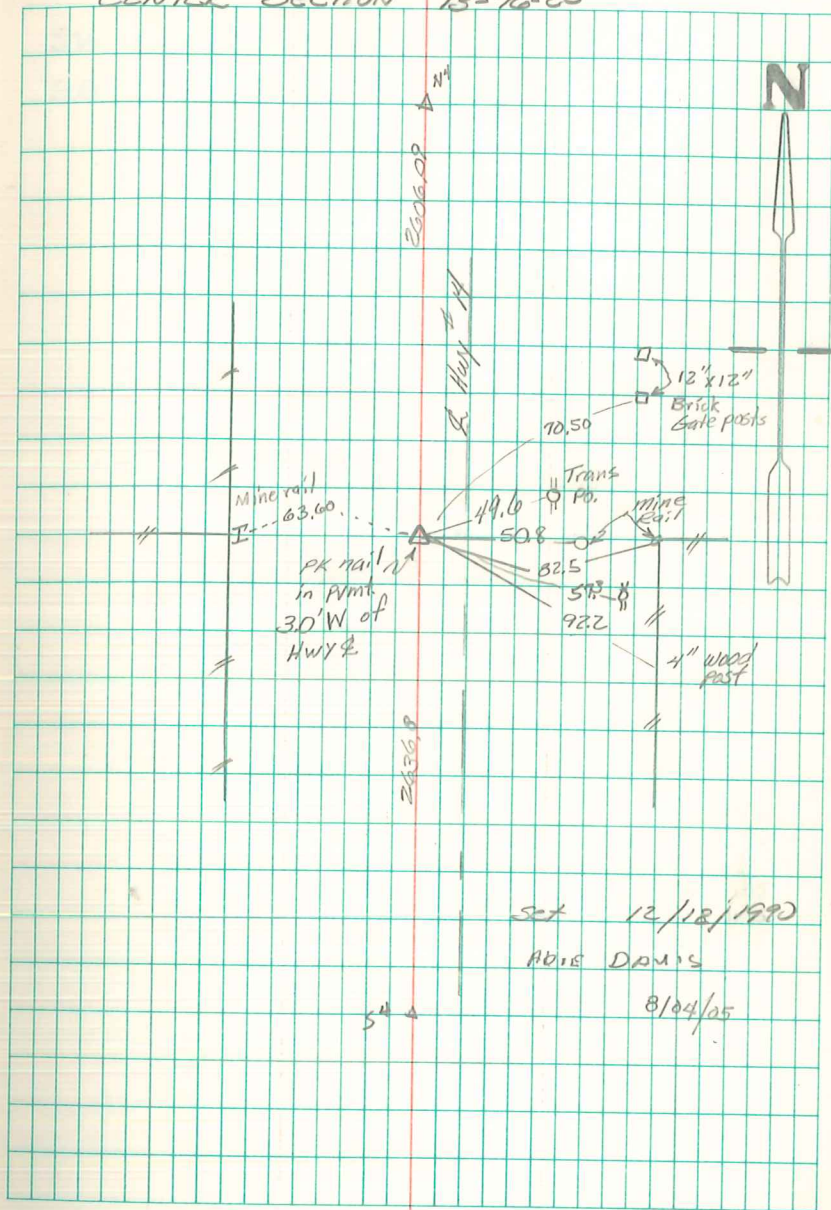 CENTER SECTION 13-16-20
N
N4
2606.02
℄ Hwy # 14
12"x12"
Brick
Gate posts
70.50
Trans
Po.
49.6
Mine rail
63.60
mine
Rail
50.8
82.5
PK nail
in Pvmt.
3.0' W of
HWY ℄
57.3
92.2
4" wood
post
2636.8
Set 12/18/1990
ABIE DAVIS
8/04/05
S4